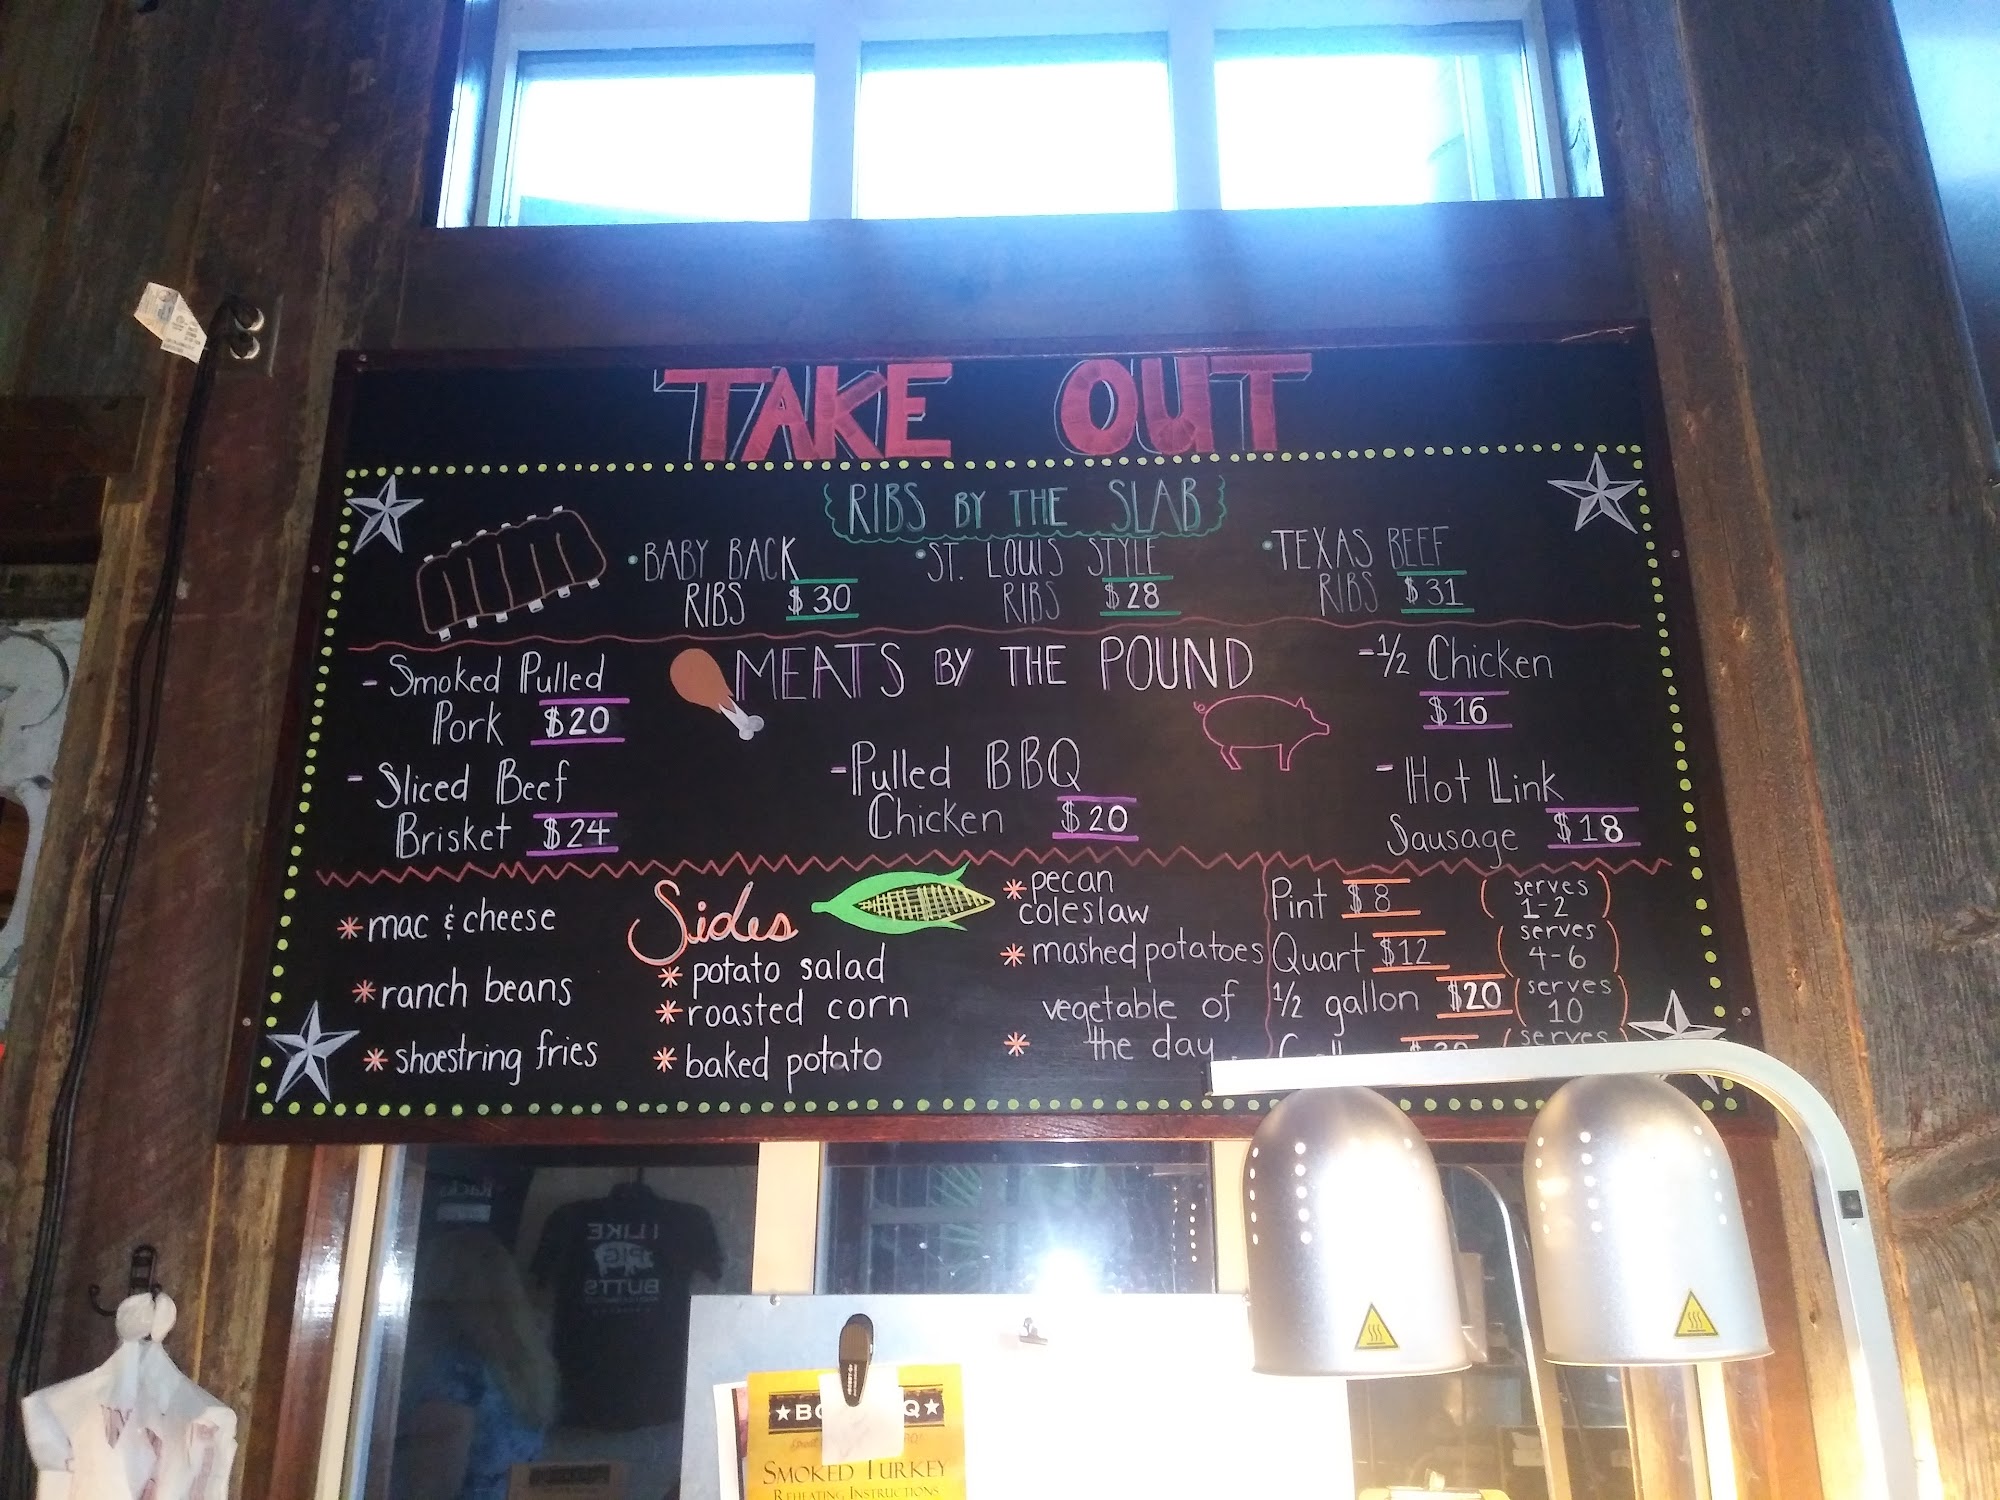 TAKE OUT
RIBS BY THE SLAB
• BABY BACK
RIBS $30
• ST. LOUIS STYLE
RIBS $28
• TEXAS BEEF
RIBS $31
MEATS BY THE POUND
- Smoked Pulled
Pork $20
- Sliced Beef
Brisket $24
- Pulled BBQ
Chicken $20
- 1/2 Chicken
$16
- Hot Link
Sausage $18
Sides
* mac & cheese
* ranch beans
* shoestring fries
* potato salad
* roasted corn
* baked potato
* pecan
coleslaw
* mashed potatoes
* vegetable of
the day.
Pint $8 (serves
1-2)
Quart $12 (serves
4-6)
1/2 gallon $20 (serves
10)
(serves
I LIKE
PIG
BUTTS
SMOKED TURKEY
REHEATING INSTRUCTIONS